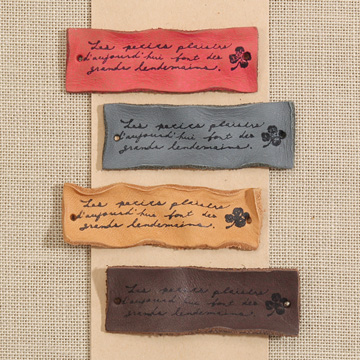 Les petits plaisirs
d'aujourd'hui font des
grands lendemains.
Les petits plaisirs
d'aujourd'hui font des
grands lendemains.
Les petits plaisirs
d'aujourd'hui font des
grands lendemains.
Les petits plaisirs
d'aujourd'hui font des
grands lendemains.